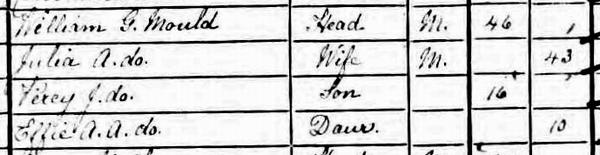 William G. Mould Head M. 46
Julia A. do. Wife M. 43
Percy J. do. Son 16
Effie A. A. do. Daur. 10